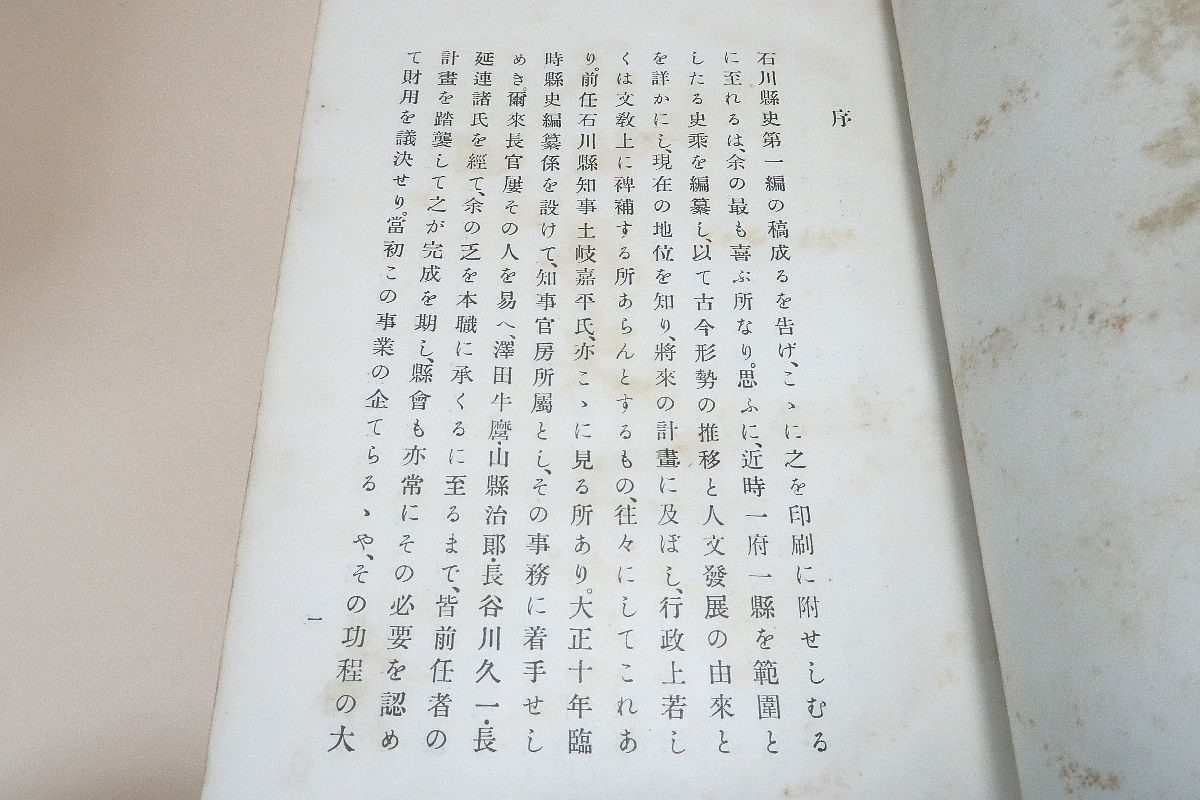 序
石川縣史第一編の稿成るを告げ、こゝに之を印刷に附せしむる
に至れるは、余の最も喜ぶ所なり。思ふに、近時一府一縣を範圍と
したる史乘を編纂し、以て古今形勢の推移と人文發展の由來と
を詳かにし、現在の地位を知り、將來の計畫に及ぼし、行政上若し
くは文敎上に裨補する所あらんとするもの、往々にしてこれあ
り。前任石川縣知事土岐嘉平氏、亦こゝに見る所あり。大正十年臨
時縣史編纂係を設けて、知事官房所屬とし、その事務に着手せし
めき。爾來長官屢その人を易へ、澤田牛麿・山縣治郞・長谷川久一・長
延連諸氏を經て、余の乏を本職に承くるに至るまで、皆前任者の
計畫を踏襲して之が完成を期し、縣會も亦常にその必要を認め
て財用を議決せり。當初この事業の企てらるゝや、その功程の大
一